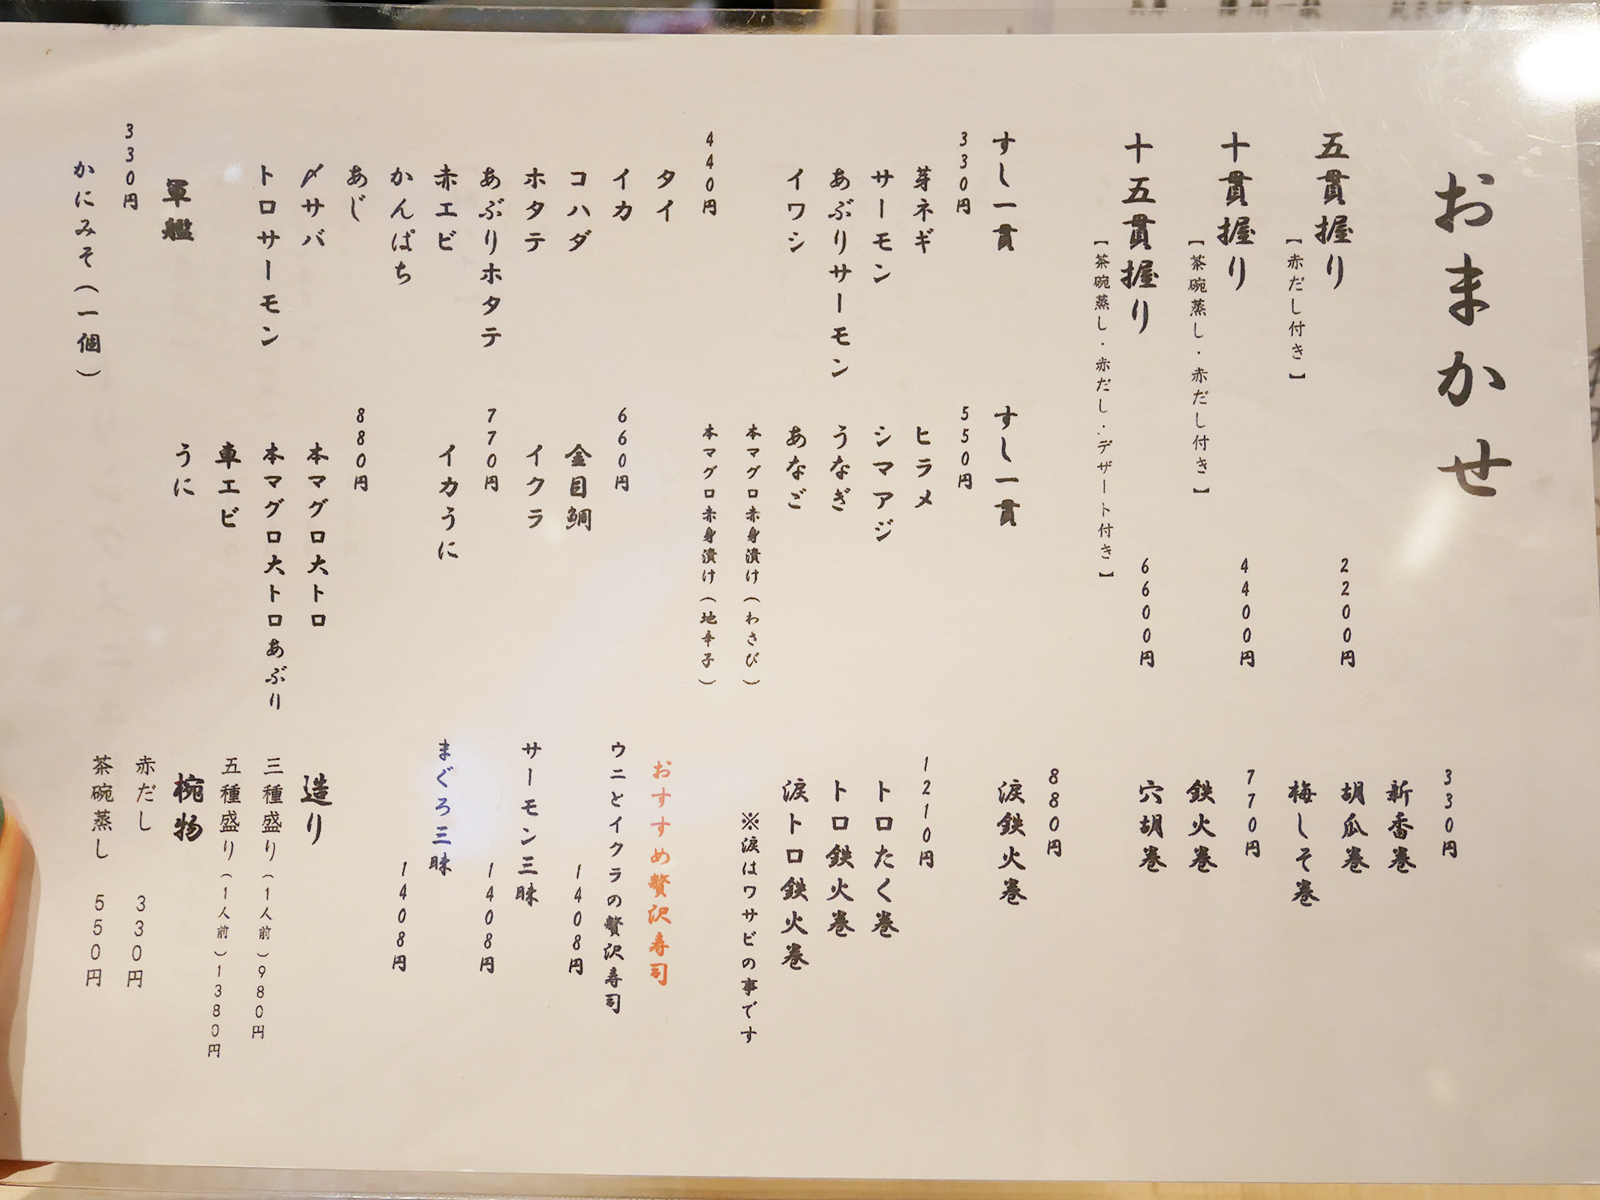 おまかせ
五貫握り
【赤だし付き】
2200円
十貫握り
【茶碗蒸し・赤だし付き】
4400円
十五貫握り
【茶碗蒸し・赤だし・デザート付き】
6600円
すし一貫
330円
芽ネギ
サーモン
あぶりサーモン
イワシ
440円
タイ
イカ
コハダ
ホタテ
あぶりホタテ
赤エビ
かんぱち
あじ
〆サバ
トロサーモン
軍艦
330円
かにみそ(一個)
すし一貫
550円
ヒラメ
シマアジ
うなぎ
あなご
本マグロ赤身漬け(わさび)
本マグロ赤身漬け(地辛子)
660円
金目鯛
イクラ
770円
イカうに
880円
本マグロ大トロ
本マグロ大トロあぶり
車エビ
うに
330円
新香巻
胡瓜巻
梅しそ巻
770円
鉄火巻
穴胡巻
880円
涙鉄火巻
1210円
トロたく巻
トロ鉄火巻
涙トロ鉄火巻
※涙はワサビの事です
おすすめ贅沢寿司
ウニとイクラの贅沢寿司
1408円
サーモン三昧
1408円
まぐろ三昧
1408円
造り
三種盛り(1人前)980円
五種盛り(1人前)1380円
椀物
赤だし 330円
茶碗蒸し 550円